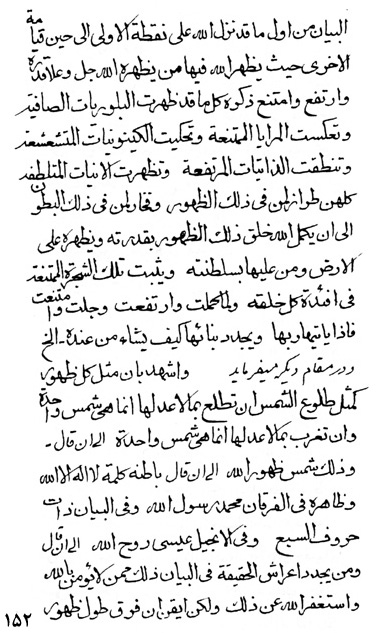 البیان من اول ما قد نزل الله علی نقطة الاولی الی حین قیامة
الاخری حیث یظهر الله فیها من یظهره الله جل وعلا قدره
وارتفع وامتنع ذکره کل ما قد ظهرت البلوریات الصافیة
وتعکست المرایا الممتنعة وتحکیت الکینونیات المتشعشعة
وتنطقت الذاتیات المرتفعة وتظهرت الانیات المتلطفة
کلهن طواز لمن فی ذلک الظهور لمن فی ذلک البطون
الی ان یکمل الله خلق ذلک الظهور بقدرته ویظهره علی
الارض ومن علیها بسلطنته ویثبت تلک الشجرة الممتنعة
فی افئدة کل خلقه وارتفعت وجلت وامتنعت
فاذا یاتیها ربها ویجدد بنائها کیف یشاء من عنده ـ الخ
ودر مقام دیگر میفرماید واشهد بان مثل کل ظهور
کمثل طلوع الشمس ان تطلع بما لا عدلها انما هی شمس واحدة
وان تغرب بما لا عدلها انما هی شمس واحدة الی ان قال ـ
وذلک شمس ظهور الله الی ان قال باطنه کلمة لا اله الا الله
وظاهره فی الفرقان محمد رسول الله وفی البیان ذات
حروف السبع وفی الانجیل عیسی روح الله الی ان قال
ومن یجدد اعراش الحقیقة فی البیان ذلک ممن لا یؤمن بالله
واستغفر الله عن ذلک ولکن ایقن ان فوق طول ظهور
۱۵۲